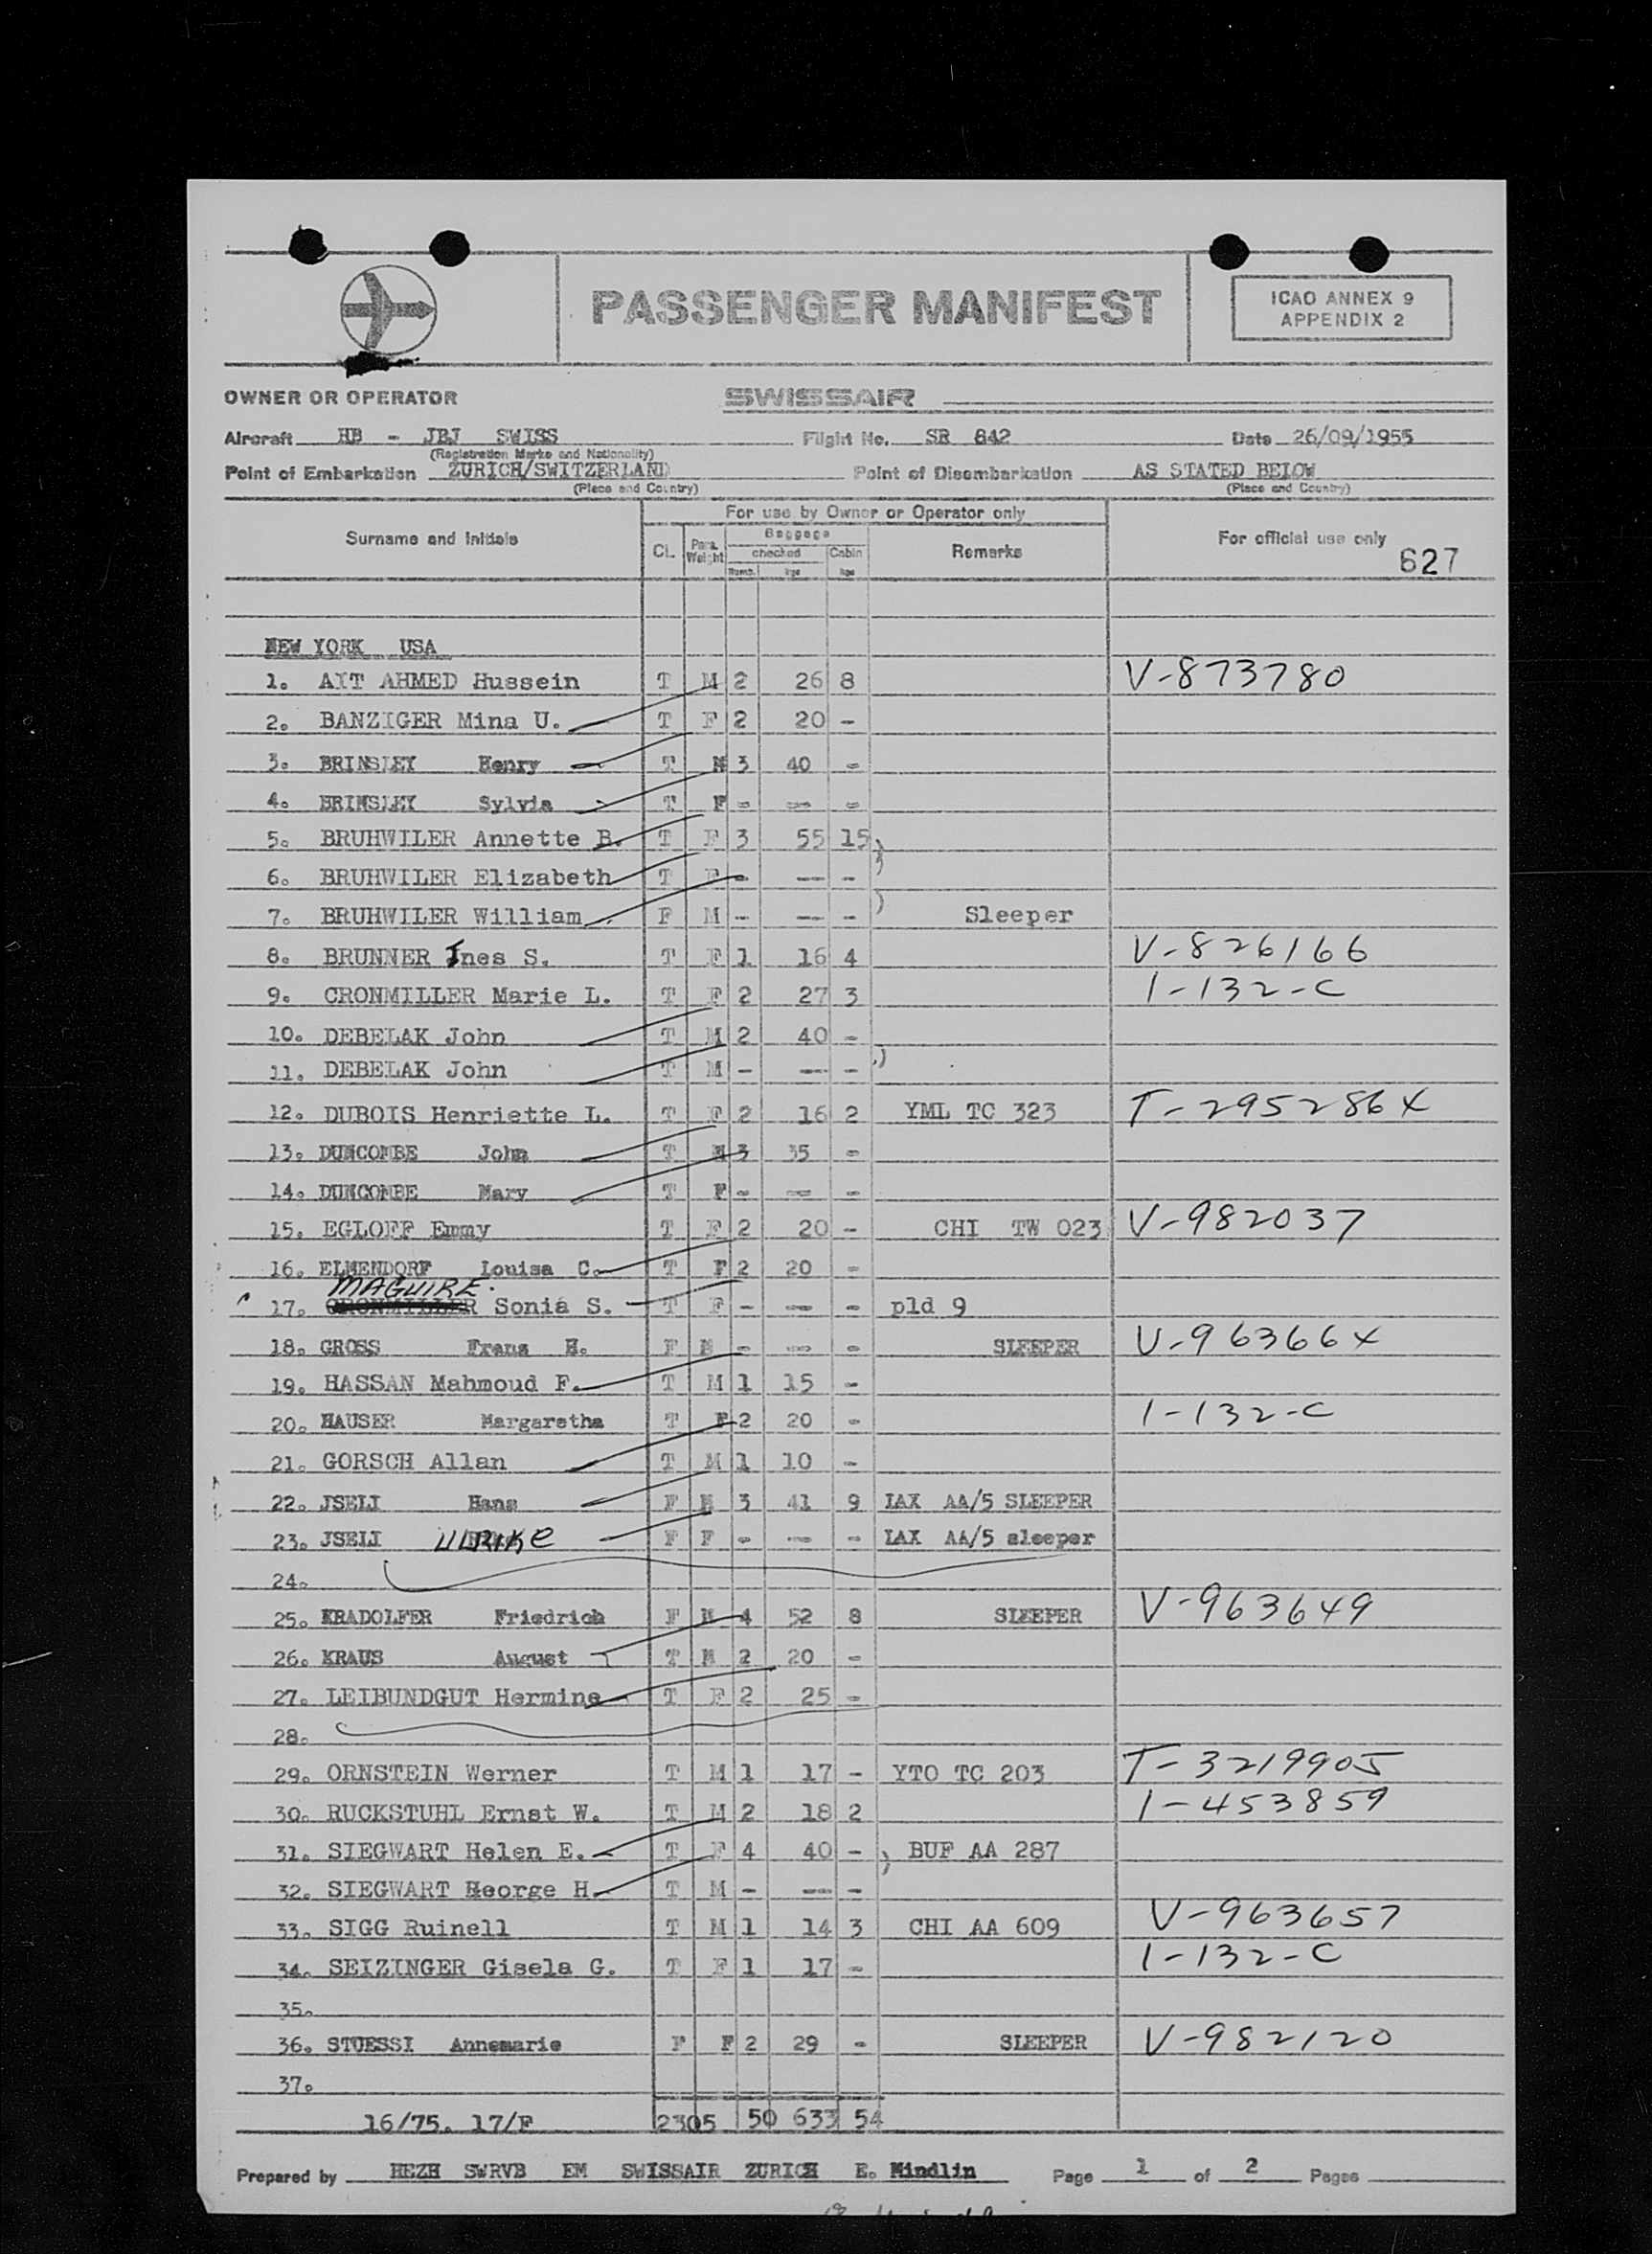 PASSENGER MANIFEST
ICAO ANNEX 9
APPENDIX 2
OWNER OR OPERATOR SWISSAIR
Aircraft HB - JBJ SWISS Flight No. SR 842 Date 26/09/1955
(Registration Marks and Nationality)
Point of Embarkation ZURICH/SWITZERLAND Point of Disembarkation AS STATED BELOW
(Place and Country) (Place and Country)
For use by Owner or Operator only
Surname and Initials CL. Pass. Weight Baggage Remarks For official use only
checked Cabin
Numb. kgs kgs
627
NEW YORK USA
1. AIT AHMED Hussein T M 2 26 8 V-873780
2. BANZIGER Mina U. T F 2 20 -
3. BRINSLEY Henry T M 3 40 -
4. BRINSLEY Sylvia T F - -- -
5. BRUHWILER Annette B. T F 3 55 15 )
6. BRUHWILER Elizabeth T F - -- - )
7. BRUHWILER William F M - -- - ) Sleeper
8. BRUNNER Ines S. T F 1 16 4 V-826166
9. CRONMILLER Marie L. T F 2 27 3 1-132-C
10. DEBELAK John T M 2 40 -
11. DEBELAK John T M - -- - )
12. DUBOIS Henriette L. T F 2 16 2 YML TC 323 T-295286X
13. DUNCOMBE John T M 3 35 -
14. DUNCOMBE Mary T F - -- -
15. EGLOFF Emmy T F 2 20 - CHI TW 023 V-982037
16. ELMENDORF Louisa C. T F 2 20 -
MAGUIRE.
17. CRONMILLER Sonia S. T F - -- - pld 9
18. GROSS Franz H. F M - -- - SLEEPER V-96366X
19. HASSAN Mahmoud F. T M 1 15 -
20. HAUSER Margaretha T F 2 20 - 1-132-C
21. GORSCH Allan T M 1 10 -
22. JSELI Hans F M 3 41 9 LAX AA/5 SLEEPER
23. JSELI ULRIKE F F - -- - LAX AA/5 sleeper
24.
25. KRADOLFER Friedrich F M 4 52 8 SLEEPER V-963649
26. KRAUS August T M 2 20 -
27. LEIBUNDGUT Hermine T F 2 25 -
28.
29. ORNSTEIN Werner T M 1 17 - YTO TC 203 T-3219905
30. RUCKSTUHL Ernst W. T M 2 18 2 1-453859
31. SIEGWART Helen E. T F 4 40 - ) BUF AA 287
32. SIEGWART Heorge H. T M - -- -
33. SIGG Ruinell T M 1 14 3 CHI AA 609 V-963657
34. SEIZINGER Gisela G. T F 1 17 - 1-132-C
35.
36. STUESSI Annemarie F F 2 29 - SLEEPER V-982120
37.
16/75. 17/F 2305 50 633 54
Prepared by HEZH SWRVB EM SWISSAIR ZURICH E. Mindlin Page 1 of 2 Pages